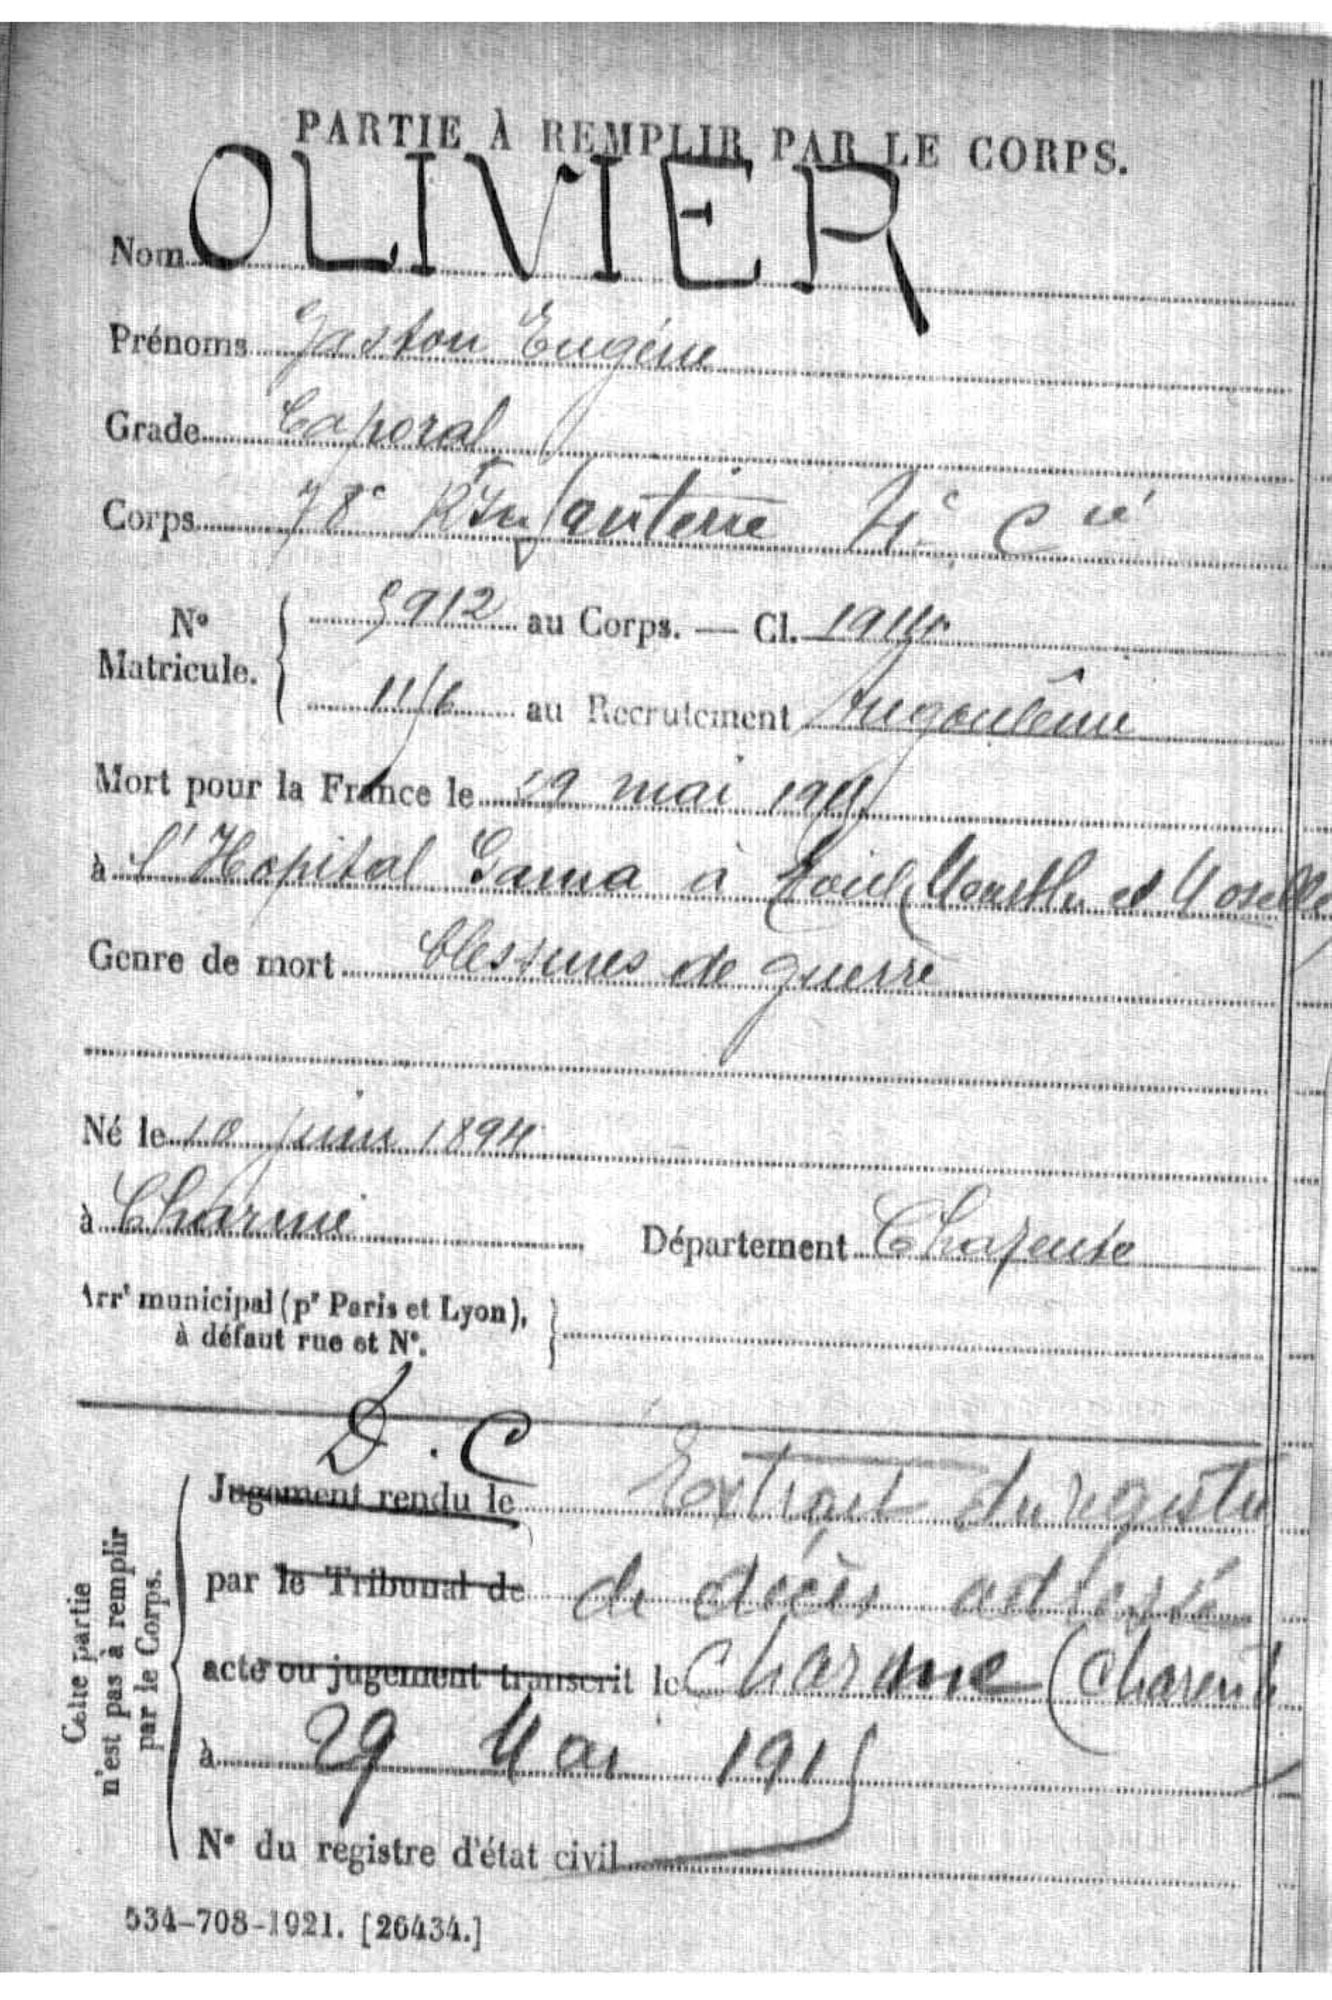 PARTIE À REMPLIR PAR LE CORPS.
Nom OLIVIER
Prénoms Gaston Eugène
Grade Caporal
Corps 78e R. Infanterie 4e Cie
No Matricule. 5912 au Corps. — Cl. 1914
1156 au Recrutement Angoulême
Mort pour la France le 29 mai 1915
à l'Hopital Gama à Toul (Meurthe et Moselle)
Genre de mort blessures de guerre
Né le 10 juin 1894
à Charmé Département Charente
Arrt municipal (pr Paris et Lyon),
à défaut rue et No.
D.C
Jugement rendu le Extrait du registre
par le Tribunal de de décès adressé
acte ou jugement transcrit le Charme (Charente
à 29 Mai 1915
No du registre d'état civil
Cette partie
n'est pas à remplir
par le Corps.
534-708-1921. [26434.]